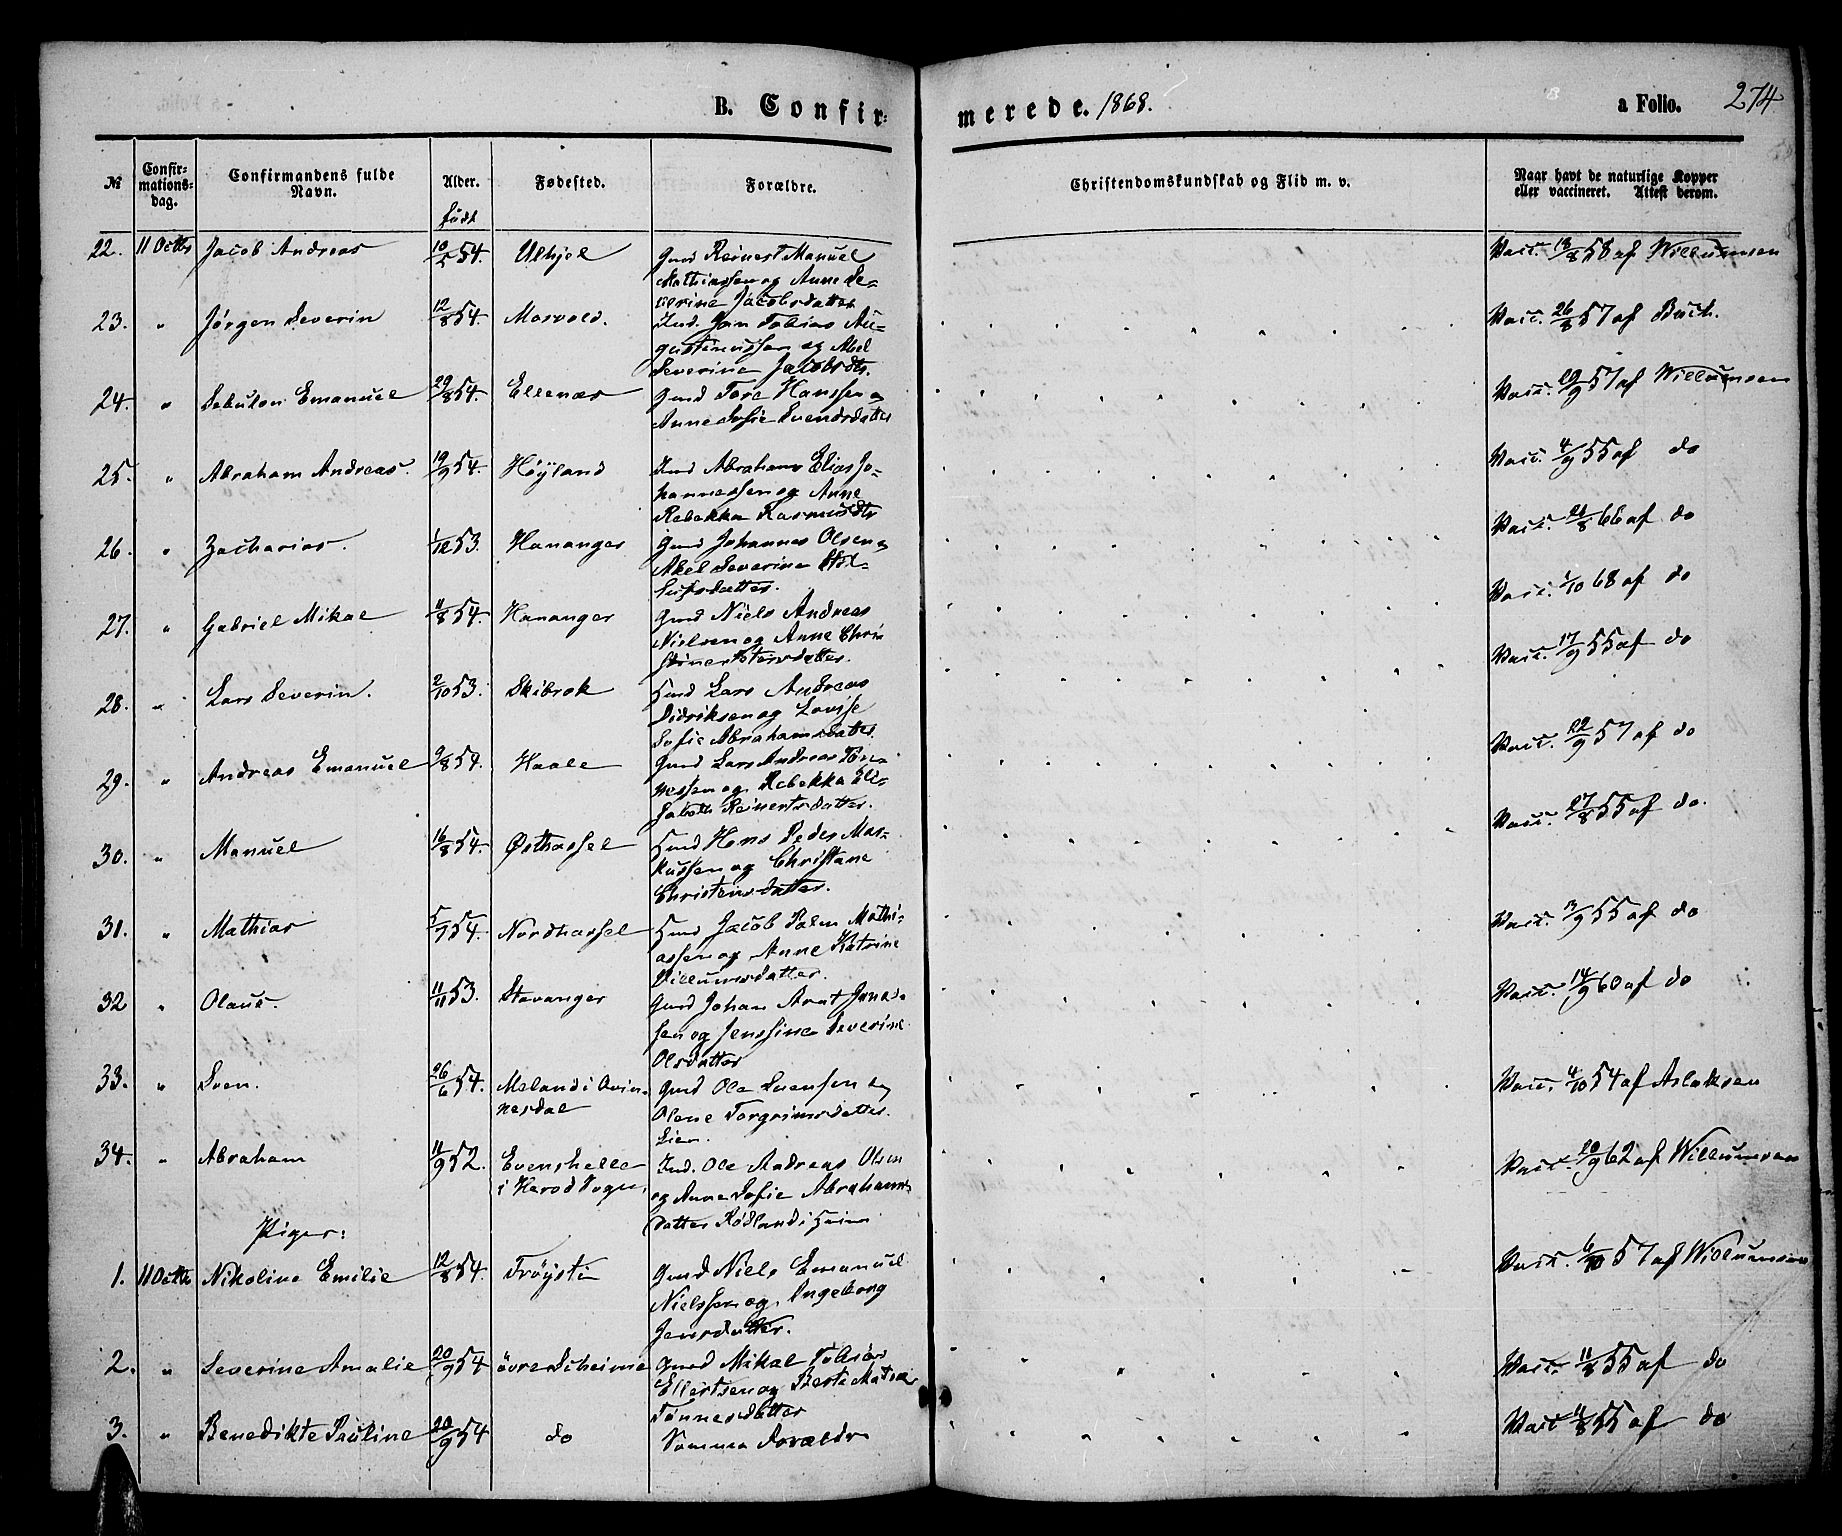 B. Confir-
merede. 1868.
a Folio. 274
№
Confir-
mations-
dag.
Confirmandens fulde
Navn.
Alder.
født
Fødested.
Forældre.
Christendomskundskab og Flid m. v.
Naar havt de naturlige Kopper
eller vaccineret. Attest derom.
22. 11 Octbr Jacob Andreas 10/5 54. Ulhjel Gmd Reinert Manuel
Mathiassen og Anne Se-
verine Jacobsdatter
Vacc. 18/8 58 af Willumsen
23. " Jørgen Severin 12/8 54. Mosvold. Ind. Jan Tobias Au-
gustinussen og Abel
Severine Jacobsdtr.
Vacc. 26/8 57 af Buch.
24. " Sebulon Emanuel 29/8 54. Ellenæs Gmd Tore Hanssen og
Anne Sofie Svendsdatter
Vacc. 20/9 57 af Willumsen
25. " Abraham Andreas. 19/9 54. Høyland Ind Abraham Elias Jo-
hannessen og Anne
Rebekka Rasmusdtr
Vacc. 4/9 55 af do
26. " Zacharias. 1/12 53. Hananger Gmd Johannes Olsen og
Abel Severine
datter.
Vacc. 21/8 66 af do
27. " Gabriel Mikal 11/8 54. Hananger Gmd Niels Andreas
Nielsen og Anne Chri
stine datter.
Vacc. 1/10 68 af do
28. " Lars Severin. 2/10 53. Skibrok Hmd Lars Andreas
Didriksen og Lovise
Sofie Abrahamsdatter.
Vacc. 17/9 55 af do
29. " Andreas Emanuel 9/8 54. Haale Gmd Lars Andreas Tøn-
nessen og Rebekka Eli-
sabeth Reinertsdatter.
Vacc. 22/9 57 af do
30. " Manuel 16/8 54. Østhassel Hmd Hans Peder Mar-
kussen og Christiane
Christensdatter.
Vacc. 27/8 55 af do.
31. " Mathias 5/9 54. Nordhassel Hmd Jacob Palm Mathi-
assen og Anne Katrine
Villumsdatter.
Vacc. 3/9 55 af do
32 " Olaus. 11/11 53. Stavanger Gmd Johan Arnt Jona-
sen og Jensine Severine
Olsdatter
Vacc. 14/9 60 af do
33. " Sven. 26/6 54. Meland i Qvin-
nesdal Gmd Ole Svensen og
Olene Torgrimsdatter
Lien.
Vacc. 4/10 54 af Aslaksen
34. " Abraham 11/9 52. Evenshelle
i Herod Sogn. Ind. Ole Andreas Olsen
og Anne Sofie Abrahams
datter Rødland i
Vacc. 20/9 62 af Willumsen
Piger:
1. 11 Octbr Nikoline Emilie 12/8 54. Trøysti Gmd Niels Emanuel
Nielssen og Ingeborg
Jensdatter.
Vacc. 6/10 57 af Willumsen
2. " Severine Amalie 20/9 54 øvre Scheime Gmd Mikal Tobias
Ellertsen og Berte Maria
Tønnesdatter
Vacc. 11/8 55 af do
3. " Benedikte Pauline 20/9 54 do Samme Forældre
Vacc 11/8 55 af do